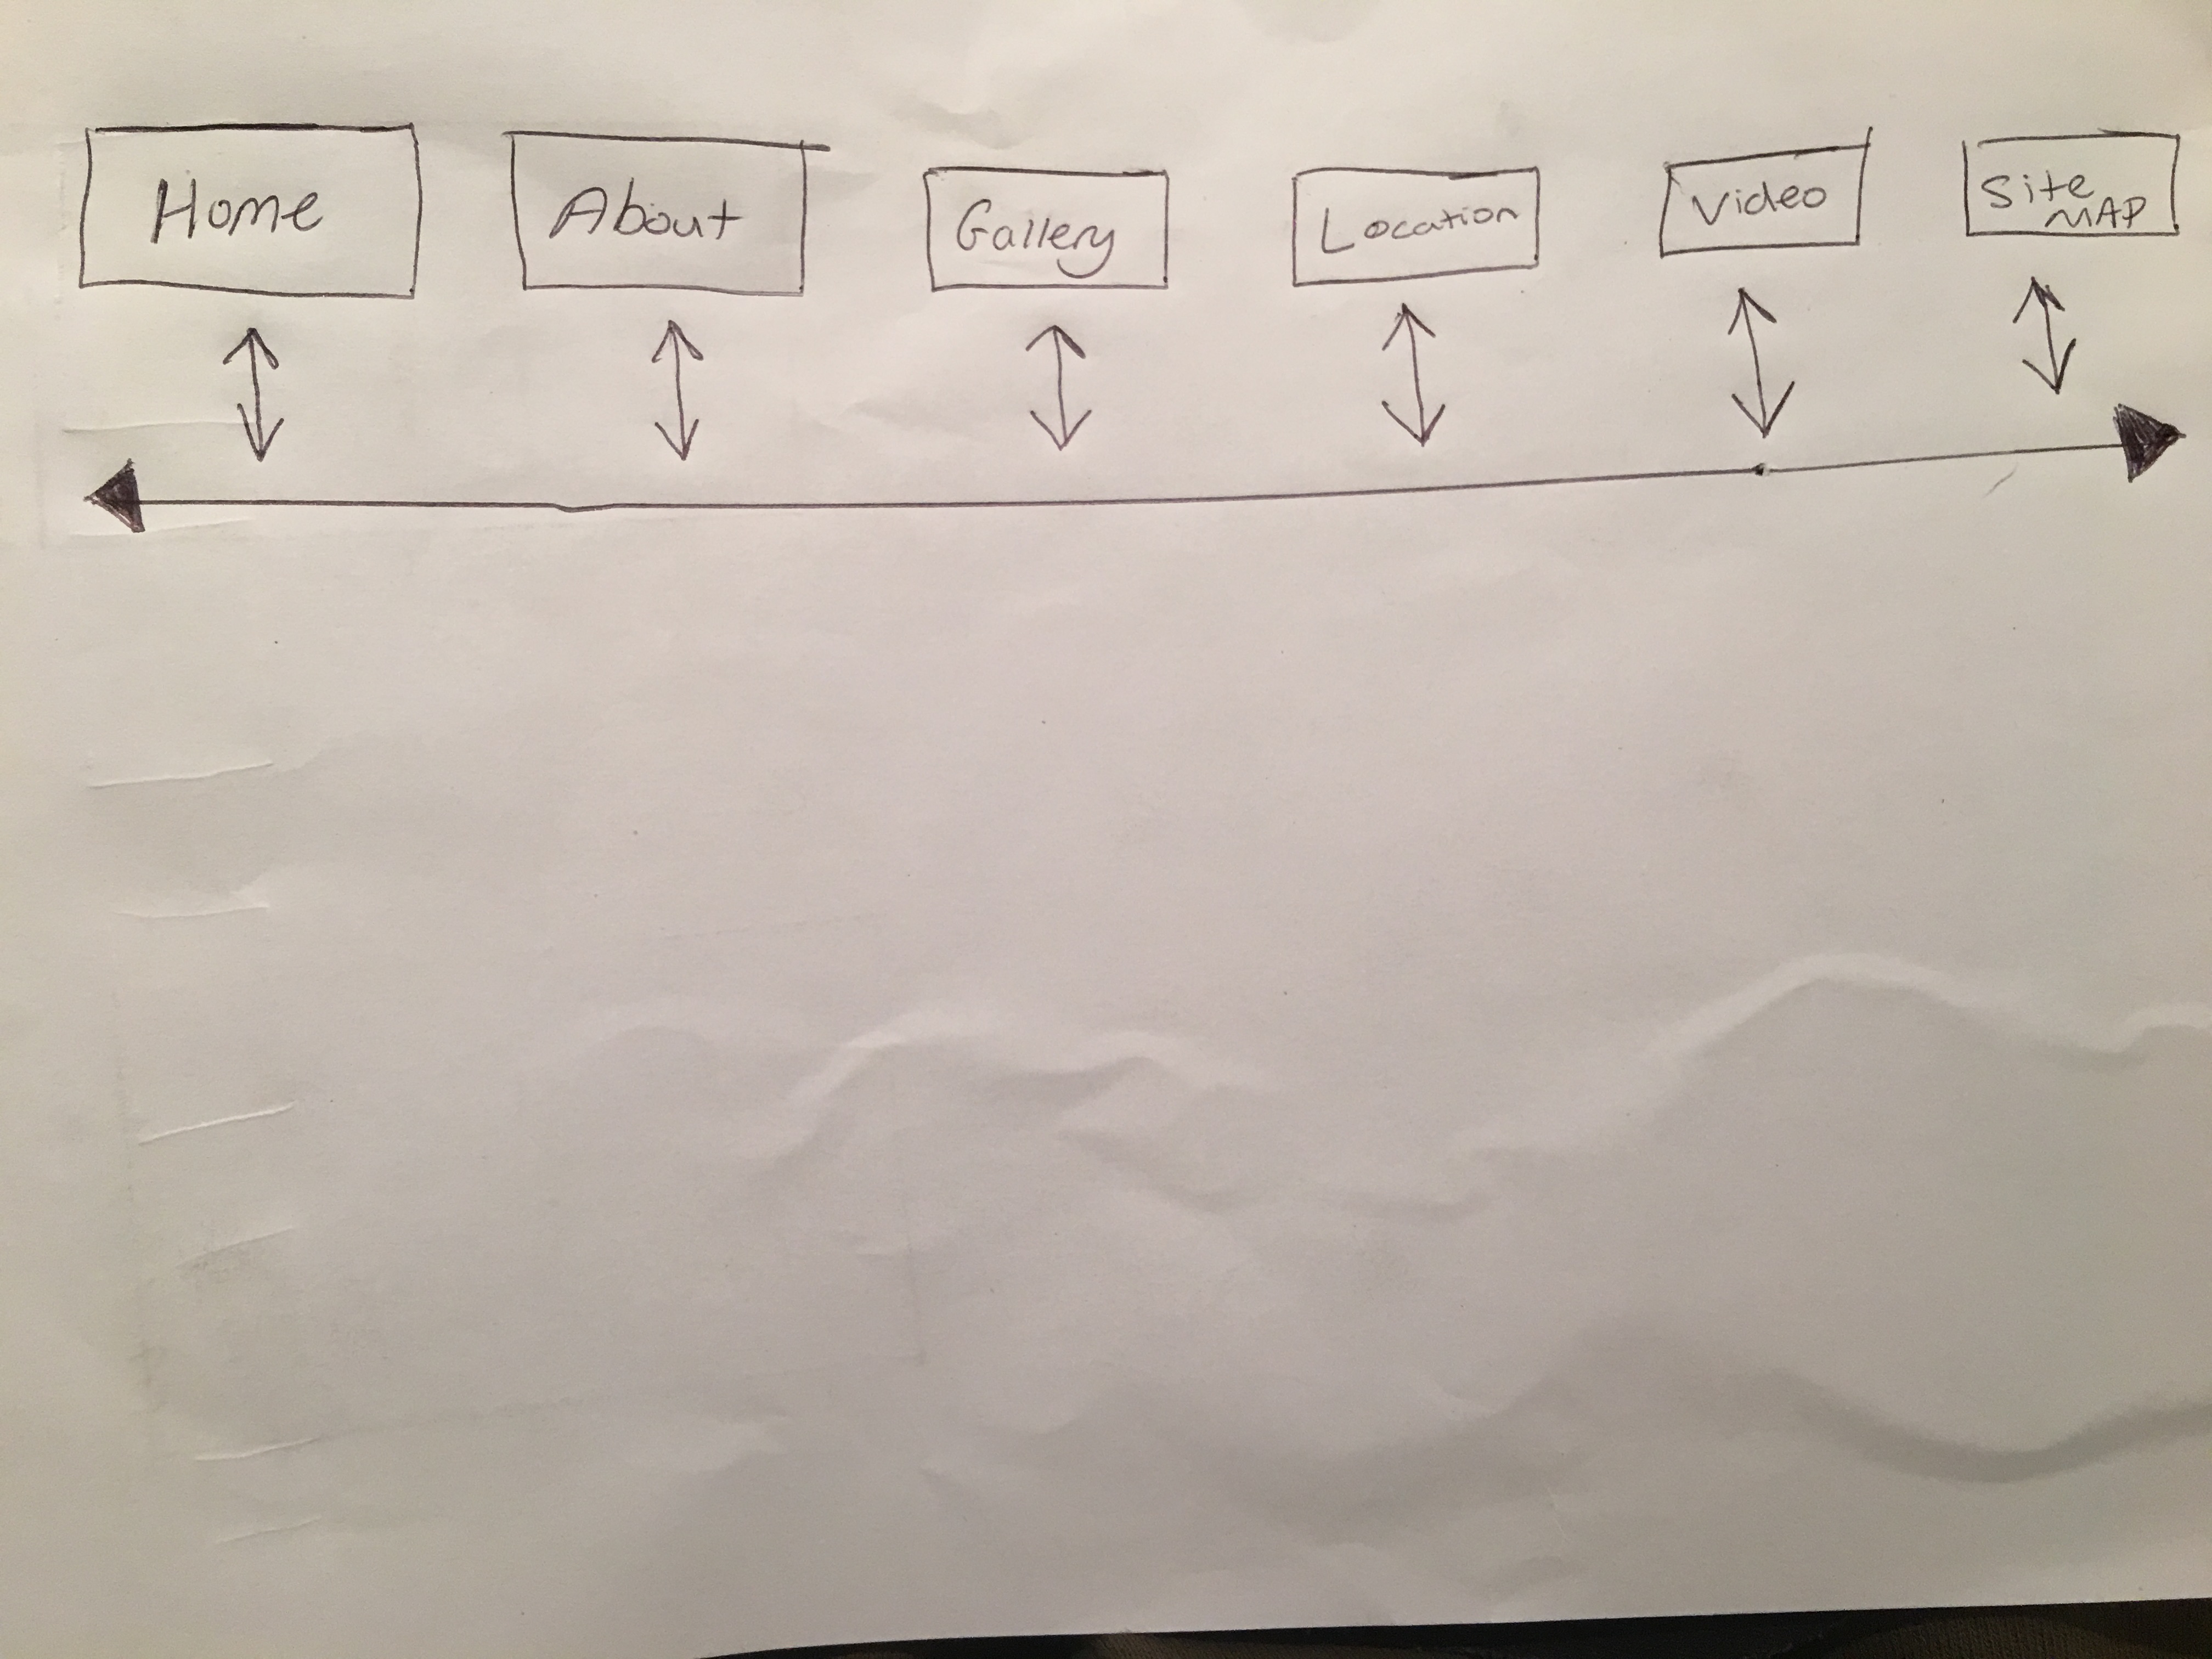 Home
About
Gallery
Location
Video
Site
MAP